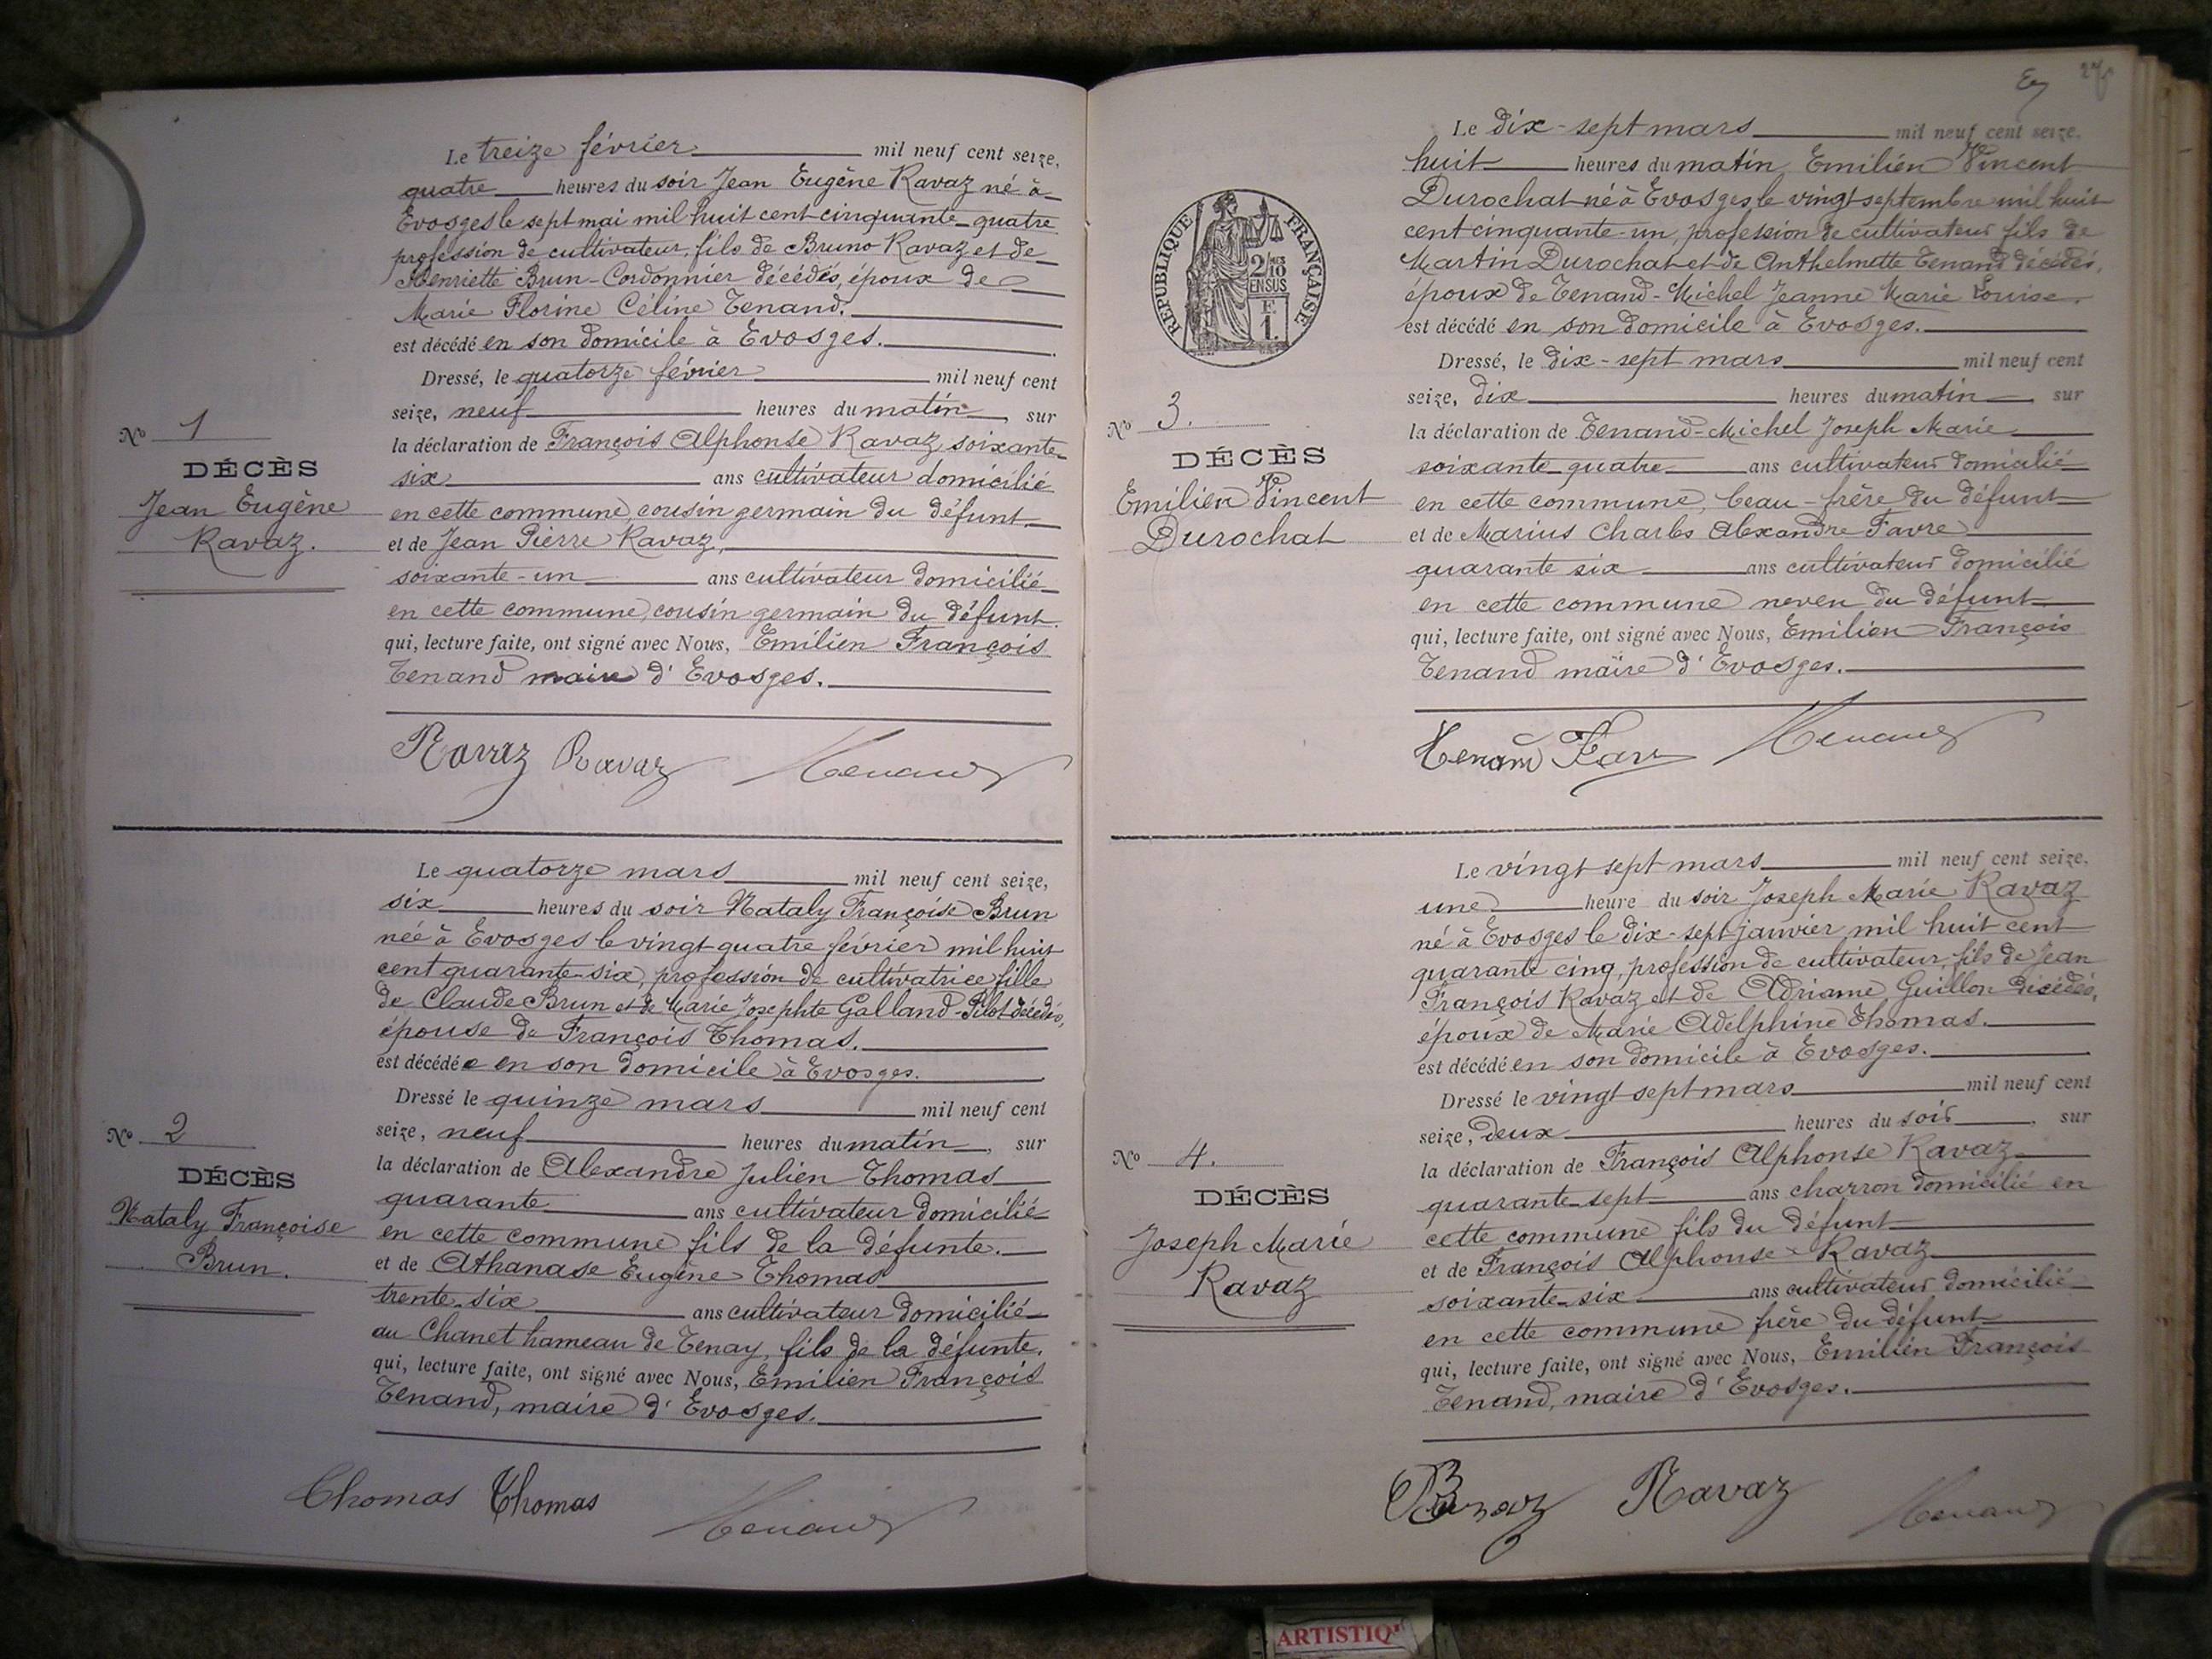 Le treize février mil neuf cent seize,
quatre heures du soir Jean Eugène Ravaz né à
Evosges le sept mai mil huit cent cinquante-quatre
profession de cultivateur, fils de Bruno Ravaz et de
Henriette Brun-Cordonnier décédés, époux de
Marie Florine Céline Tenand.
est décédé en son domicile à Evosges.
Dressé, le quatorze février mil neuf cent
seize, neuf heures du matin, sur
la déclaration de François Alphonse Ravaz, soixante-
six ans cultivateur domicilié
en cette commune, cousin germain du défunt
et de Jean Pierre Ravaz,
soixante-un ans cultivateur domicilié
en cette commune, cousin germain du défunt.
qui, lecture faite, ont signé avec Nous, Emilien François
Tenand maire d'Evosges.
Nº 1
DÉCÈS
Jean Eugène
Ravaz.
Ravaz Ravaz Tenand
Le quatorze mars mil neuf cent seize,
six heures du soir Nataly Françoise Brun
née à Evosges le vingt-quatre février mil huit
cent quarante-six, profession de cultivatrice fille
de Claude Brun et de Marie Josephte Galland-Pilot décédés,
épouse de François Thomas.
est décédée en son domicile à Evosges.
Dressé le quinze mars mil neuf cent
seize, neuf heures du matin, sur
la déclaration de Alexandre Julien Thomas
quarante ans cultivateur domicilié
en cette commune fils de la défunte.
et de Athanase Eugène Thomas
trente-six ans cultivateur domicilié
au Chanet hameau de Tenay, fils de la défunte.
qui, lecture faite, ont signé avec Nous, Emilien François
Tenand, maire d'Evosges.
Nº 2
DÉCÈS
Nataly Françoise
Brun.
Thomas Thomas Tenand
Le dix-sept mars mil neuf cent seize,
huit heures du matin Emilien Vincent
Durochat né à Evosges le vingt septembre mil huit
cent cinquante-un, profession de cultivateur fils de
Martin Durochat et de Anthelmette Tenand décédés,
époux de Tenand-Michel Jeanne Marie Louise.
est décédé en son domicile à Evosges.
Dressé, le dix-sept mars mil neuf cent
seize, dix heures du matin, sur
la déclaration de Tenand-Michel Joseph Marie
soixante-quatre ans cultivateur domicilié
en cette commune, beau-frère du défunt
et de Marius Charles Alexandre Favre
quarante six ans cultivateur domicilié
en cette commune neveu du défunt
qui, lecture faite, ont signé avec Nous, Emilien François
Tenand maire d'Evosges.
RÉPUBLIQUE FRANÇAISE
2/10 EN SUS
F.
1.
Nº 3.
DÉCÈS
Emilien Vincent
Durochat
Tenand Favre Tenand
Le vingt-sept mars mil neuf cent seize,
une heure du soir Joseph Marie Ravaz
né à Evosges le dix-sept janvier mil huit cent
quarante cinq, profession de cultivateur, fils de Jean
François Ravaz et de Adrianne Guillon décédés,
époux de Marie Adelphine Thomas.
est décédé en son domicile à Evosges.
Dressé le vingt-sept mars mil neuf cent
seize, deux heures du soir, sur
la déclaration de François Alphonse Ravaz
quarante-sept ans charron domicilié en
cette commune fils du défunt
et de François Alphonse Ravaz
soixante-six ans cultivateur domicilié
en cette commune frère du défunt
qui, lecture faite, ont signé avec Nous, Emilien François
Tenand, maire d'Evosges.
Nº 4.
DÉCÈS
Joseph Marie
Ravaz
Ravaz Ravaz Tenand
ARTISTIQ